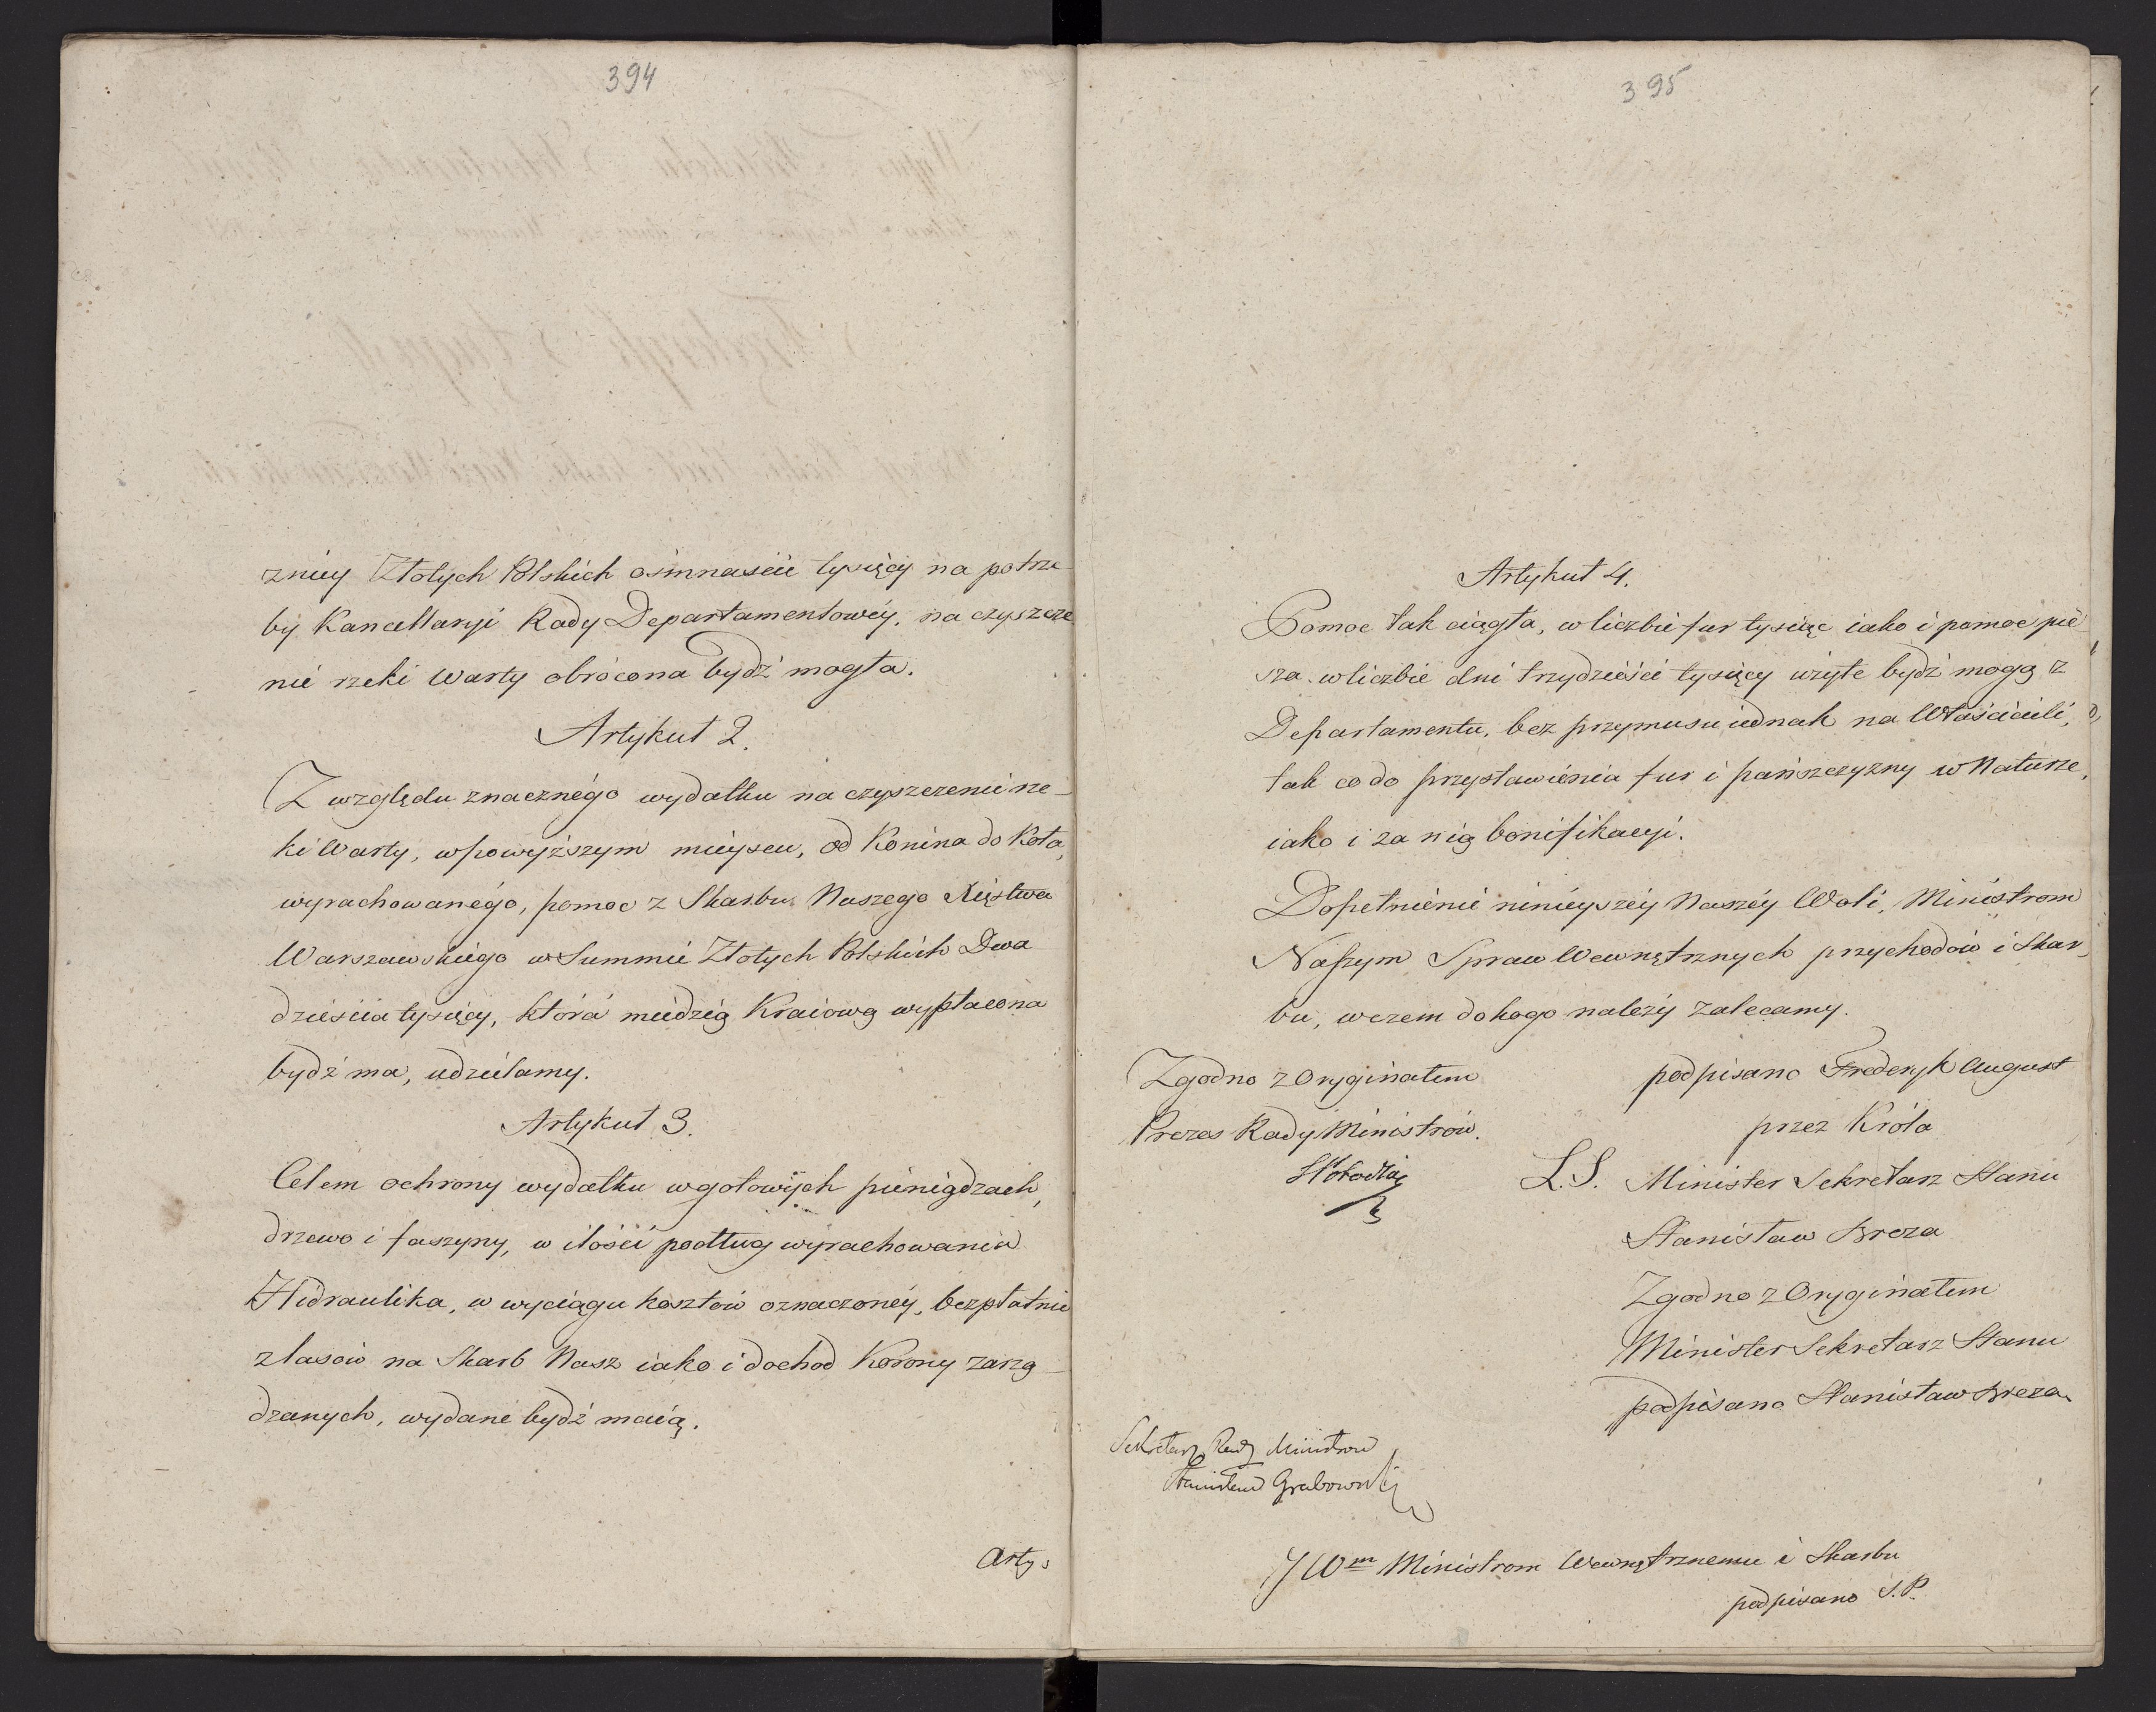 394
zniey Złotych Polskich ośmnaście tysięcy na potrze-
by Kancellaryi Rady Departamentowéy, na czyszcze
nie rzeki Warty obrócona bydź mogła.
Artykuł 2.
Z względu znacznégo wydatku na czyszczenie rze-
ki Warty, w powyższym mieyscu, od Konina do Koła,
wyrachowanégo, pomoc z Skarbu Naszego Xięstwa
Warszawskiégo w Summie Złotych Polskich Dwa
dzieścia tysięcy, która miedzią Kraiową wypłacona
bydź ma, udzielamy.
Artykuł 3.
Celem ochrony wydatku w gotowych pieniądzach,
drzewo i faszyny, w ilości podług wyrachowania
Hidraulika, w wyciągu kosztów oznaczonéy, bezpłatnie
z lasów na Skarb Nasz iako i dochod Korony zarzą-
dzanych, wydane bydź maią.
Arty:
395
Artykuł 4.
Pomoc tak ciągła, w liczbie fur tysiąc iako i pomoc pie-
sza w liczbie dni trzydzieści tysięcy użyte bydź mogą z
Departamentu, bez przymusu iednak na Właścicieli,
tak co do przystawienia fur i pańszczyzny w Naturze,
iako i za nią bonifikacyi.
Dopełnienie ninieyszéy Naszéy Woli, Ministrom
Naszym Spraw Wewnętrznych przychodów i Skar-
bu, w czem do kogo należy zalecamy.
Zgodno z Oryginałem
podpisano Frederyk August
Prezes Rady Ministrów.
przez Króla
L.S. Minister Sekretarz Stanu
Stanisław Breza
Zgodno z Oryginałem
Minister Sekretarz Stanu
podpisano Stanisław Breza
Sekretarz Rady Ministrów
Stanisław Grabowski
JW<sup>m</sup> Ministrom Wewnętrznemu i Skarbu
podpisano S.P.